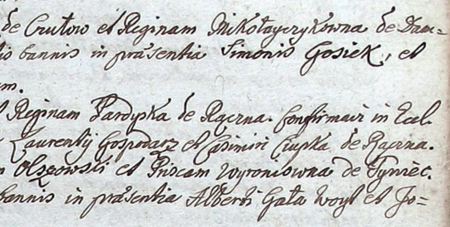 de Crutow et Reginam Mikołayczykowna de Dam=
io bannis in præsentia Simonis Gosiek, et
m.
Reginam Pardyska de Rączna. Confirmavi in Eccl.
Laurentij Gospodarz et Casimiri Ciupka de Rączna.
Olszowski et Priscam Wyroniowna de Tyniec.
bannis in præsentia Alberti Gała Woyt et Jo=